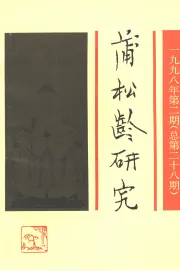 蒲松龄研究
一九九八年第二期(总第二十八期)